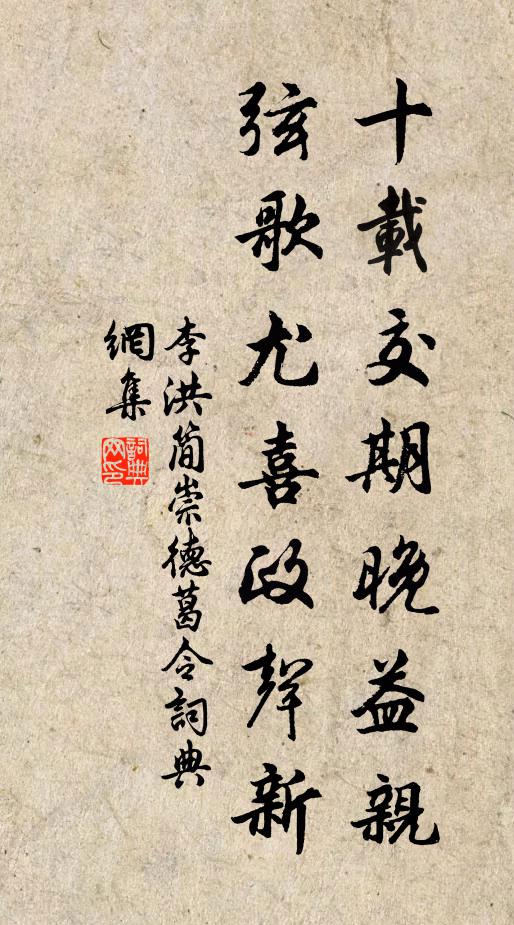 十載交期晚益親
弦歌尤喜政聲新
李洪簡崇德葛令詞典
網集
詞典網印